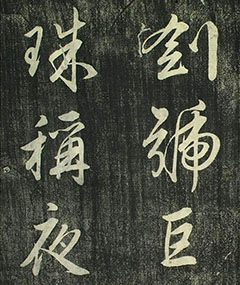 劍號巨
珠稱夜